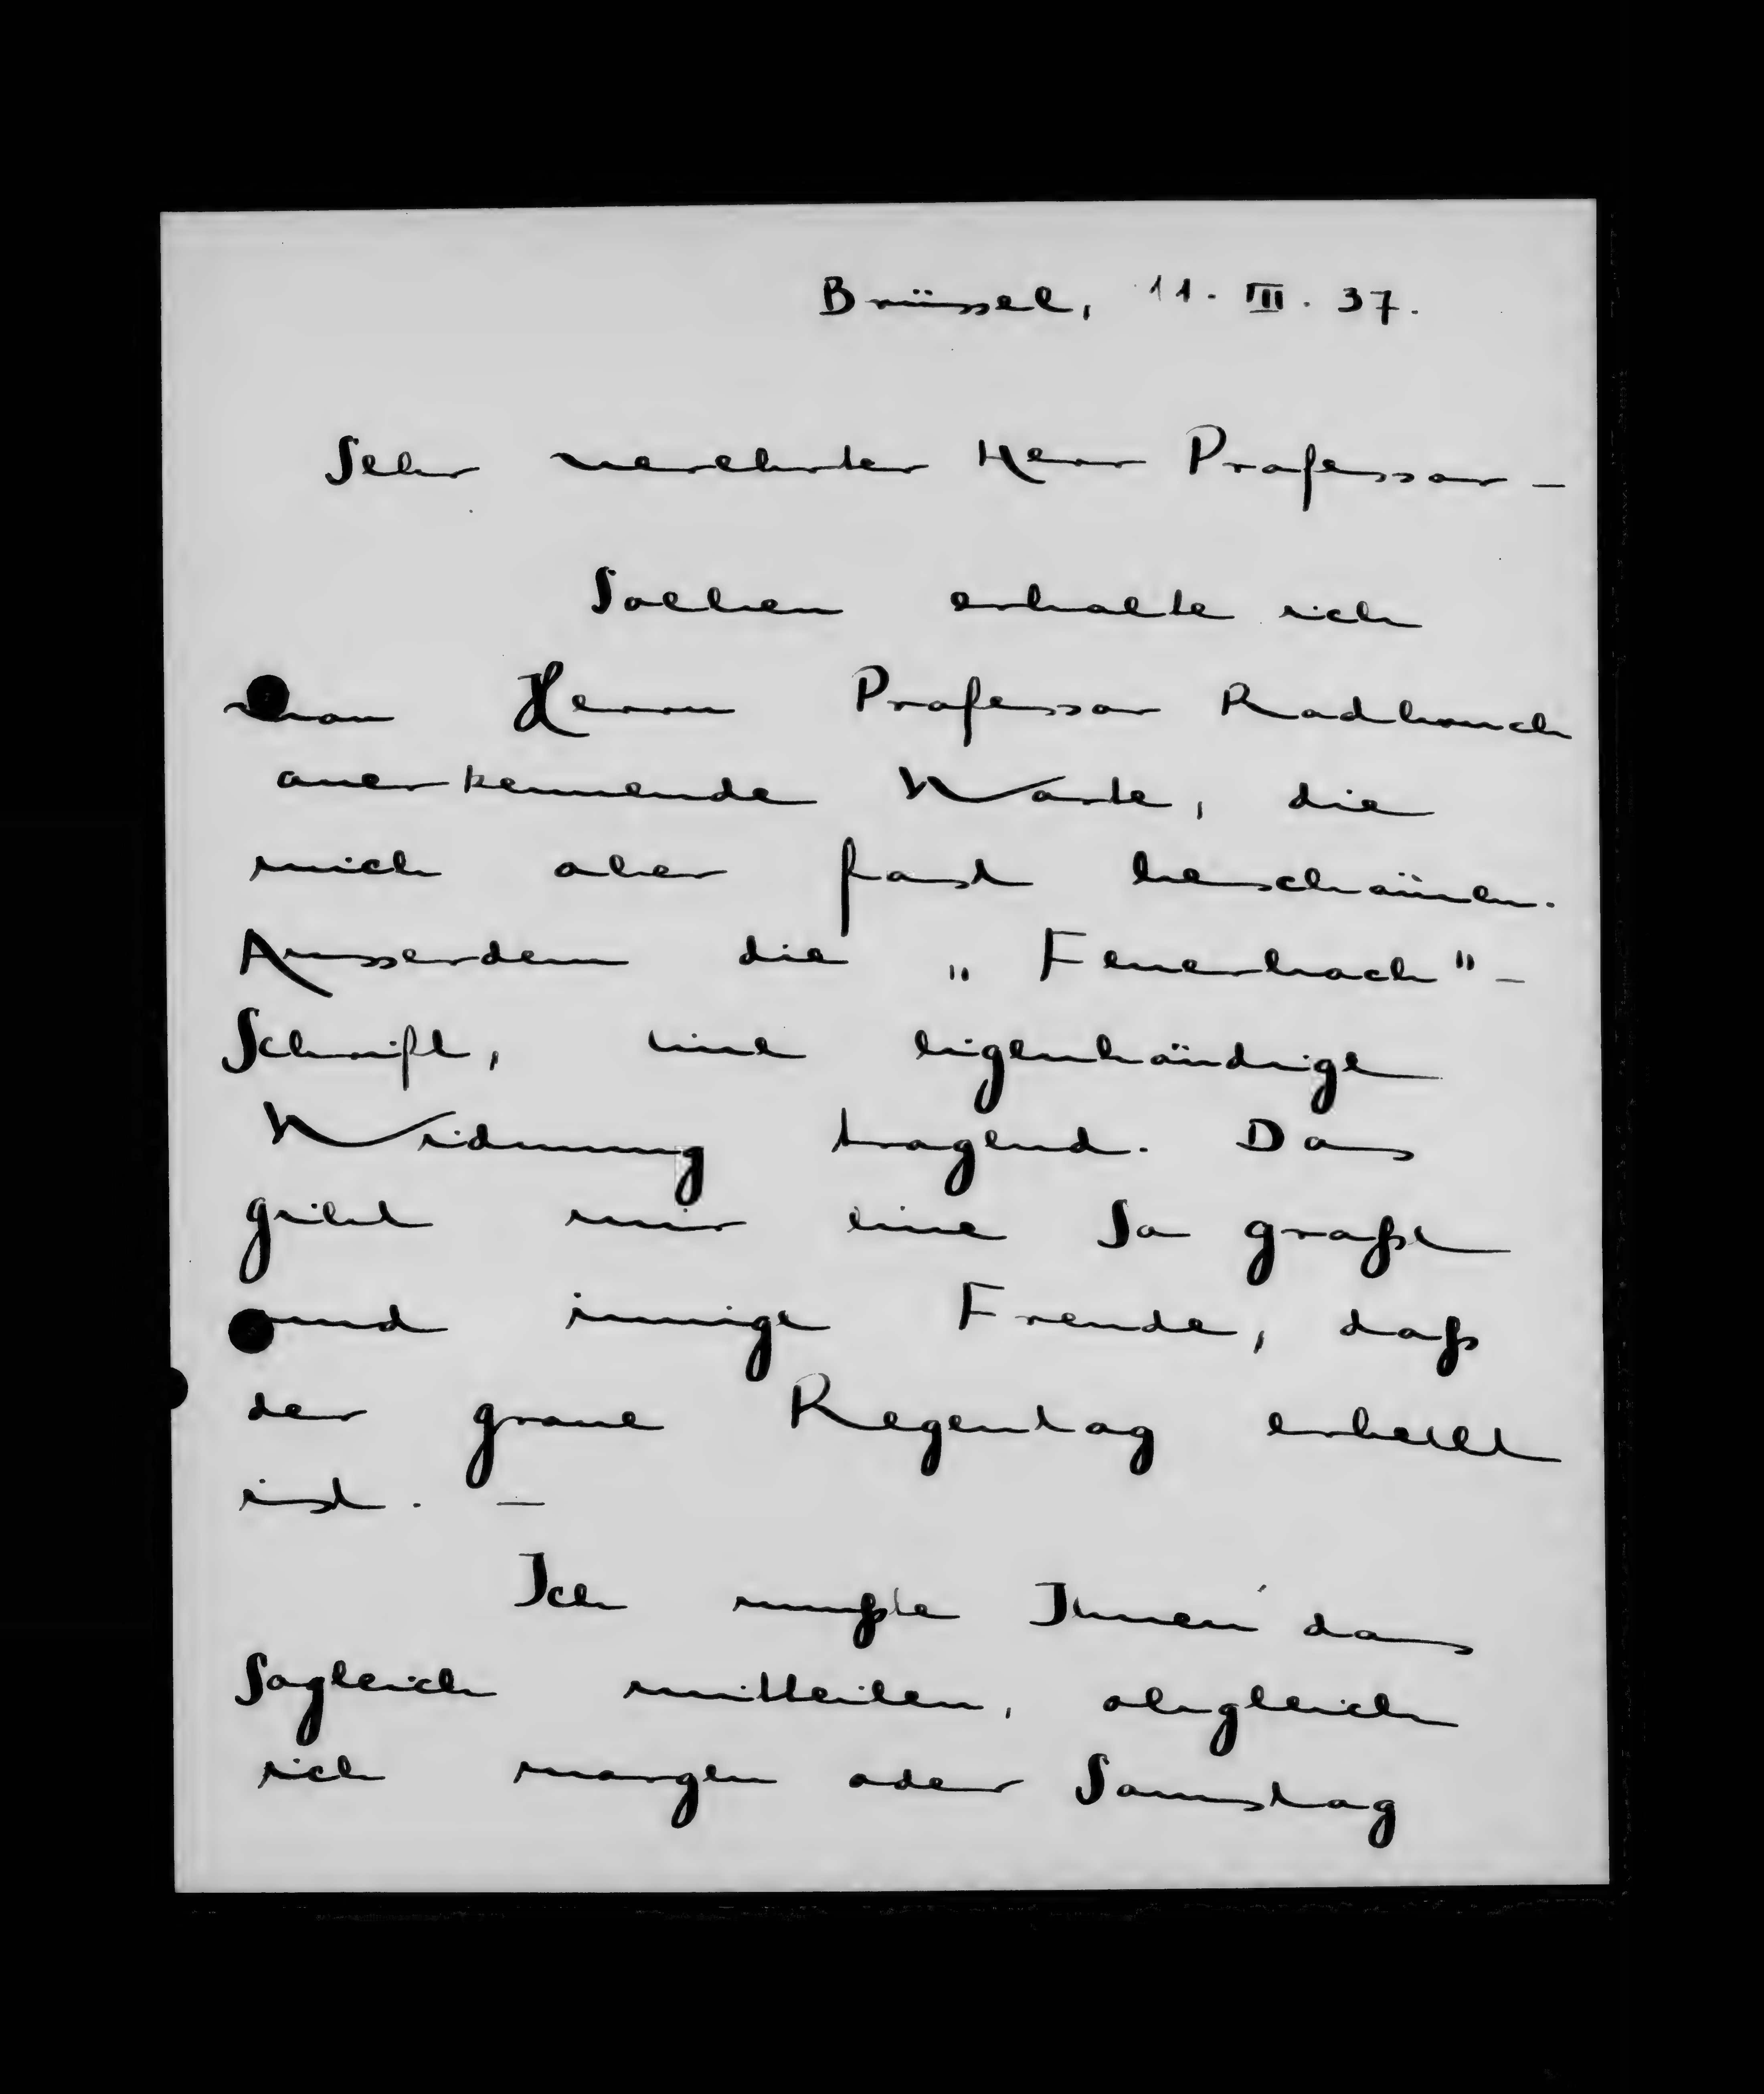 Brüssel, 11. III. 37.
Sehr verehrter Herr Professor –
Soeben erhalte ich
von Herrn Professor Radbruch
anerkennende Worte, die
mich aber fast beschämen.
Ausserdem die „Feuerbach"-
Schrift, eine eigenhändige
Widmung tragend. Das
gibt mir eine so große
und innige Freude, daß
der graue Regentag erhellt
ist. –
Ich mußte Ihnen das
sogleich mitteilen, obgleich
ich morgen oder Samstag